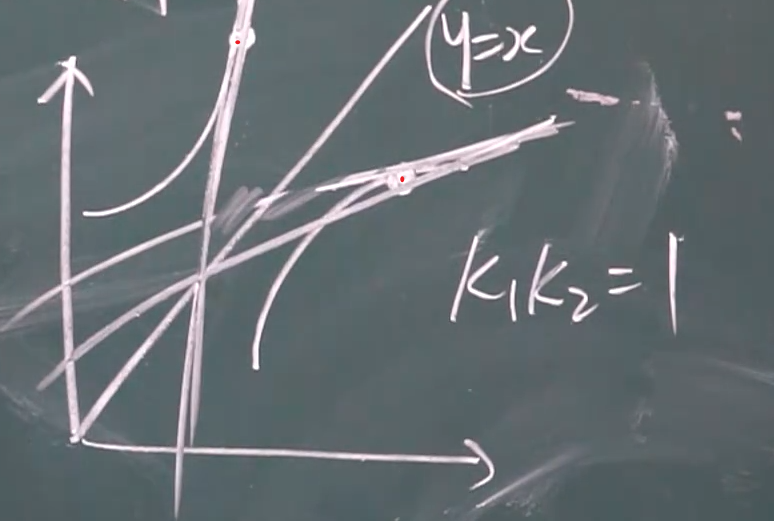 y=x
K₁K₂=1